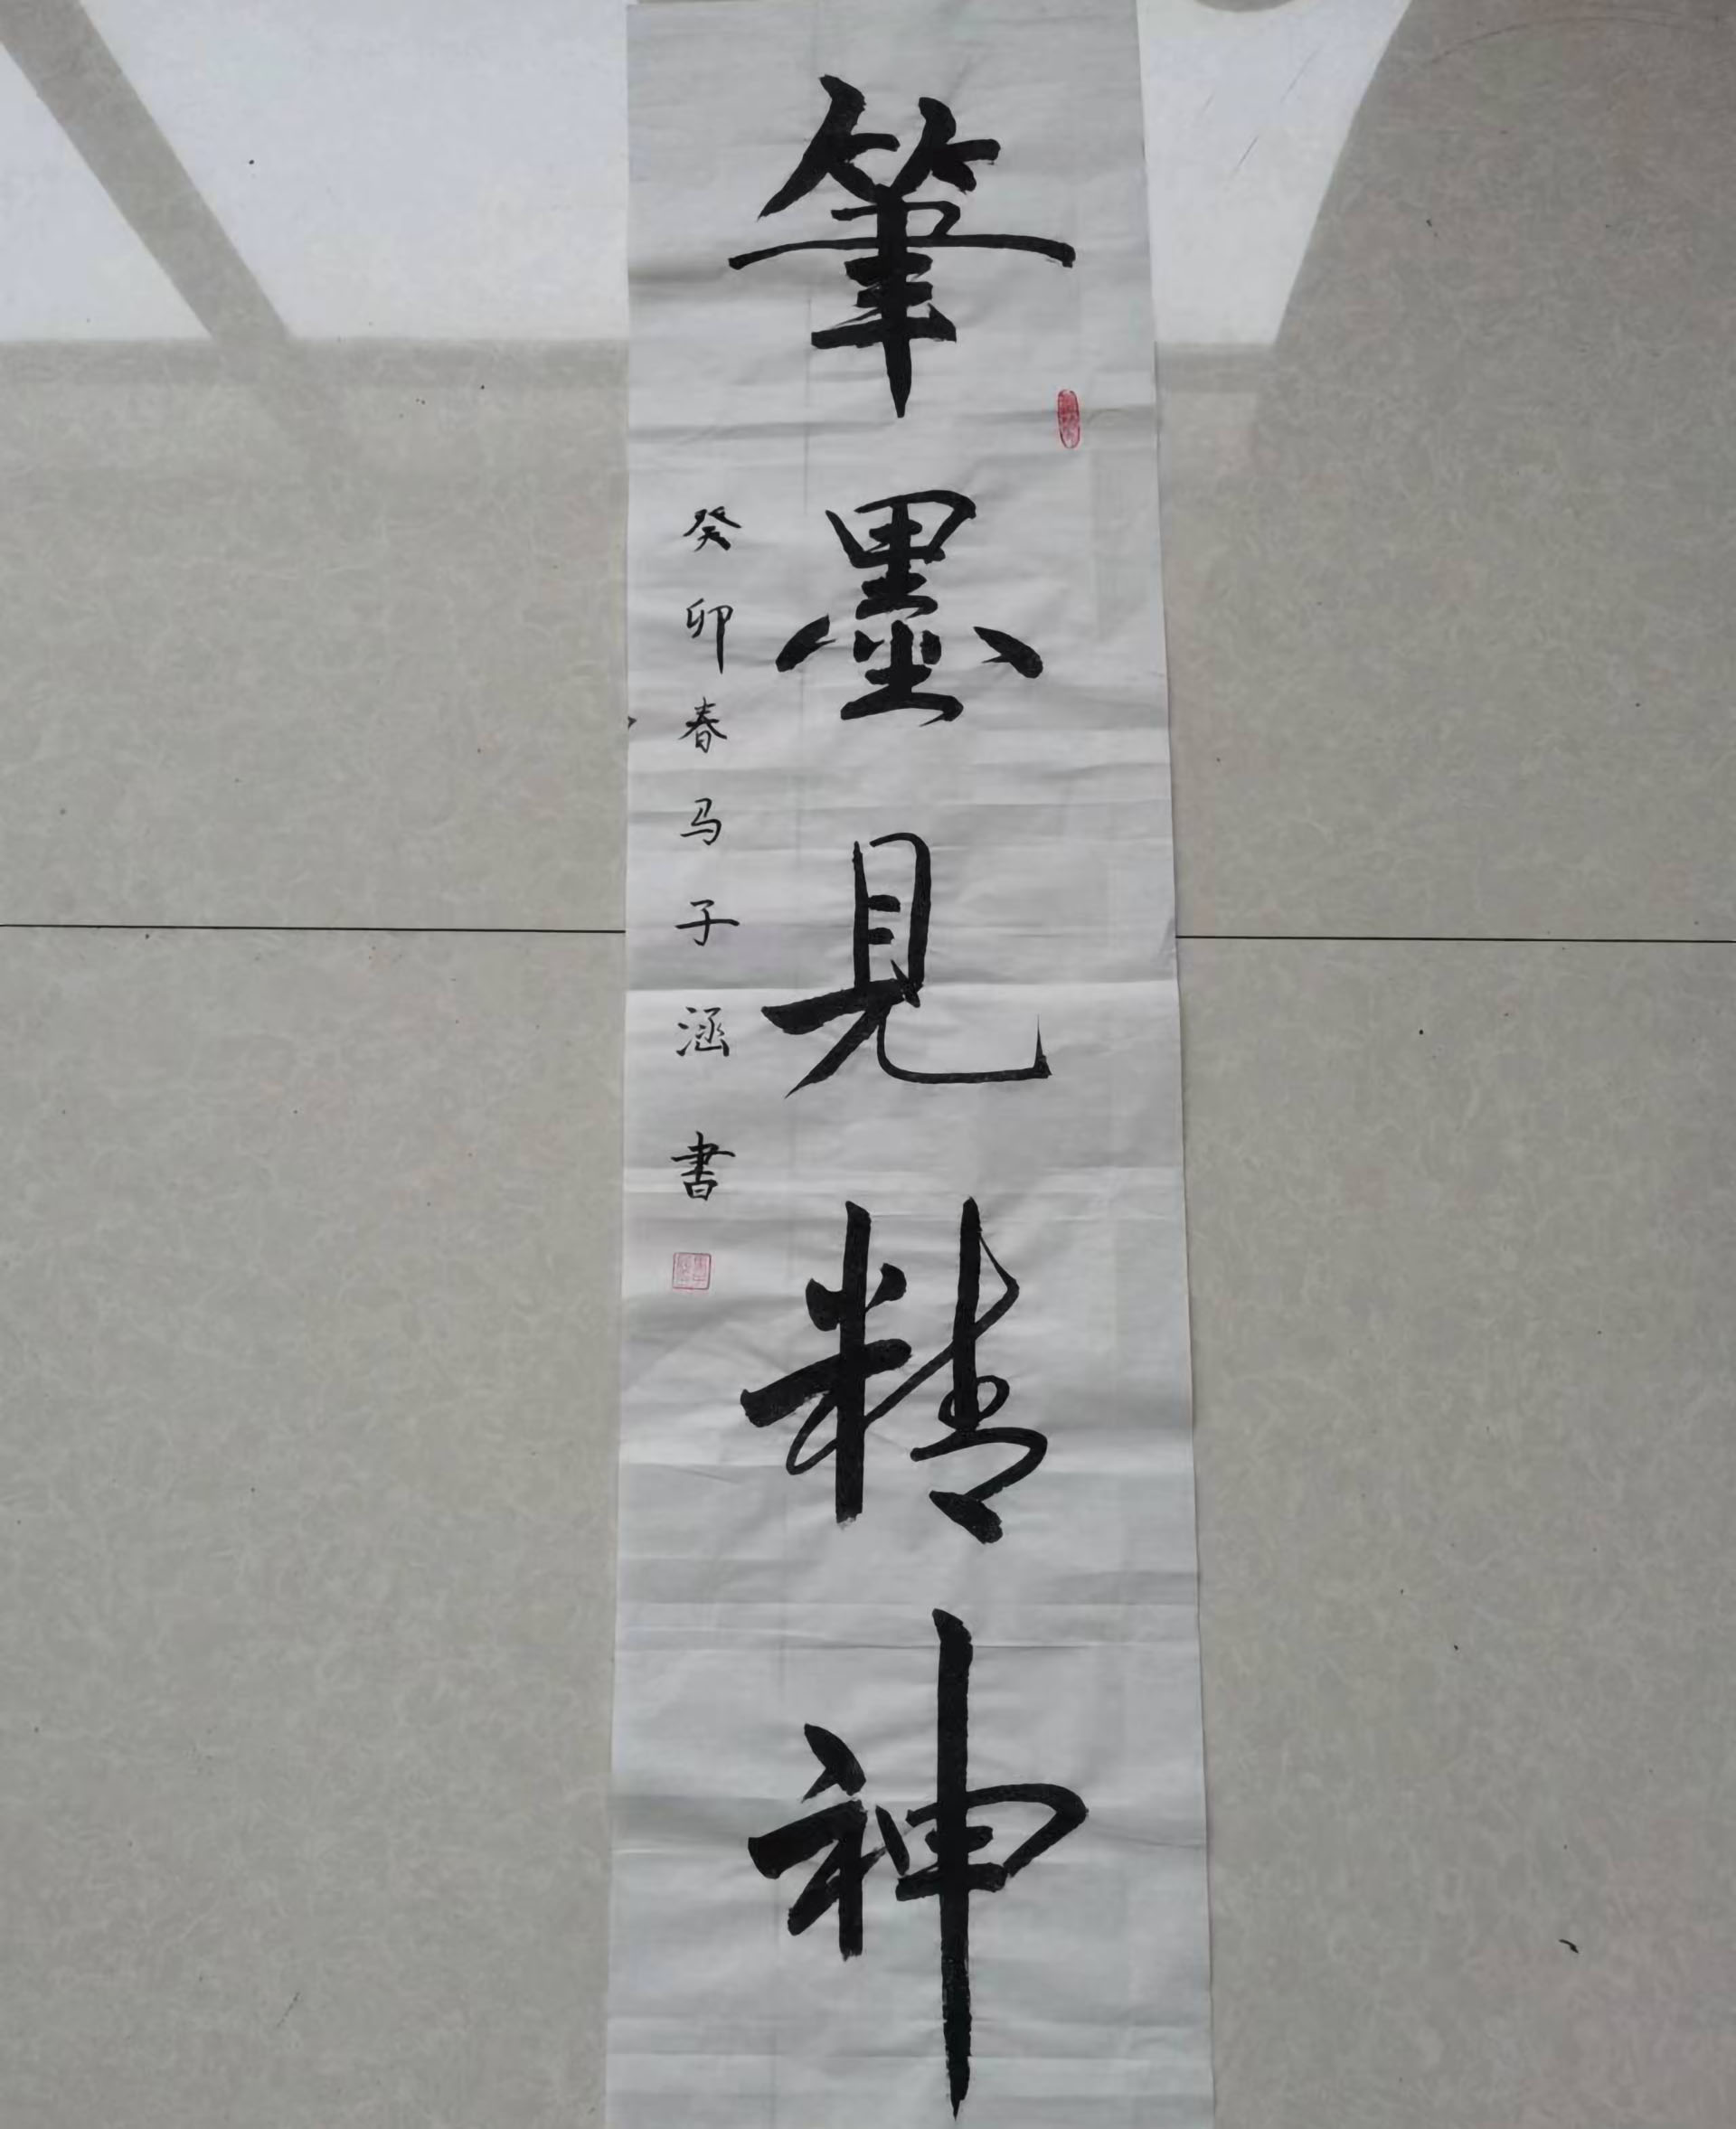 筆墨見精神
癸卯春马子涵書